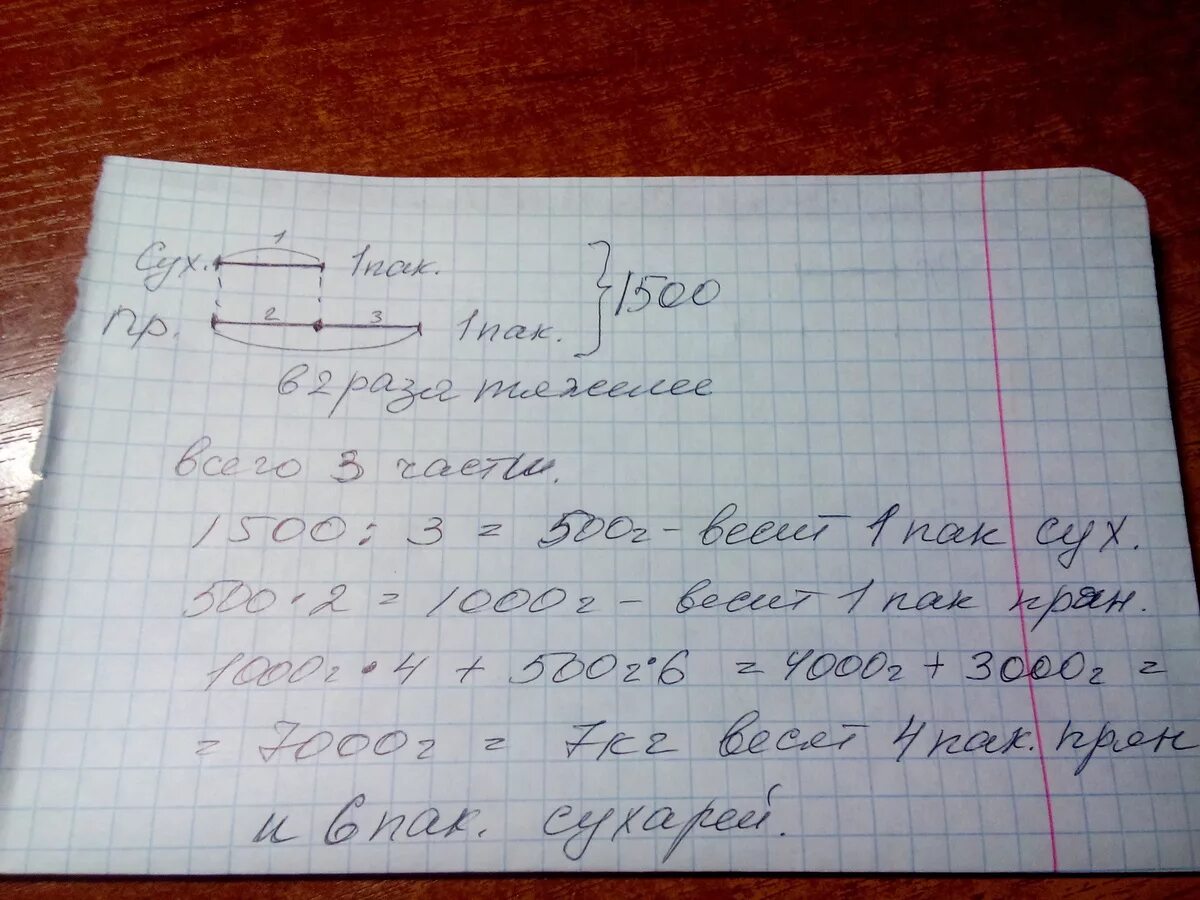 1
Сух. 1пак.
} 1500
2 3
Пр. 1пак.
в 2 раза тяжелее
всего 3 части.
1500 : 3 = 500г - весит 1 пак сух.
500 · 2 = 1000г - весит 1 пак прян.
1000г · 4 + 500г · 6 = 4000г + 3000г =
= 7000г = 7кг весят 4 пак. прян
и 6 пак. сухарей.